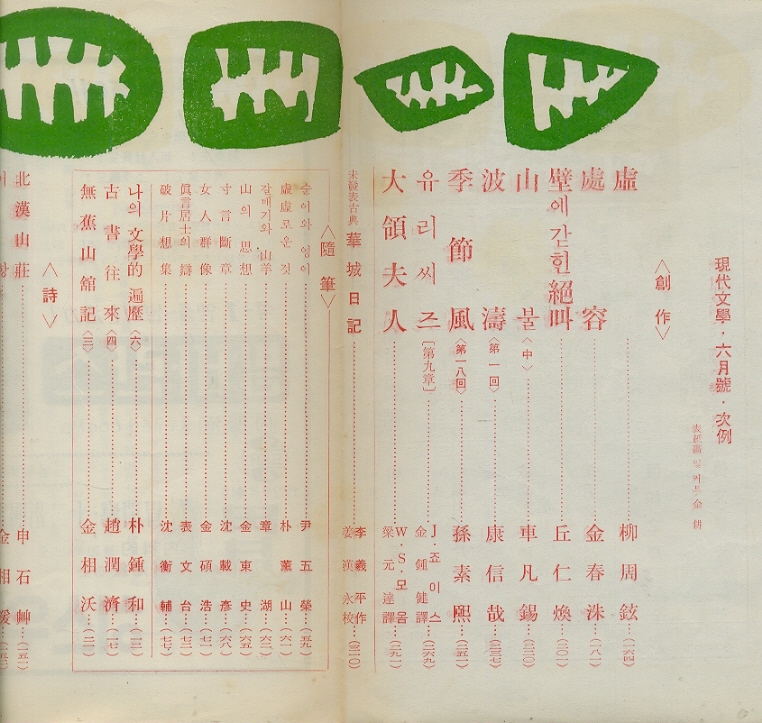 現代文學·六月號·次例
表紙畵 및 커트 金
〈創作〉
虛 柳周鉉…(一六四)
處容 金春洙…(一八一)
壁에 갇힌 絕叫 丘仁煥…(二〇一)
山불〈中〉 車凡錫…(二二〇)
波濤〈第一回〉 康信哉…(二三七)
季節風〈第一八回〉 孫素熙…(二五一)
유리씨즈[第九章] J·죠이스 金鍾健譯…(二六九)
大領夫人 W·S·모옴 梁元達譯…(二九一)
未發表古典 華城日記 李羲平作 姜漢永校…(三一〇)
〈隨筆〉
술이와 영이 尹五榮…(五九)
虛虛로운 것 朴薰山…(六一)
갈매기와 山羊 章湖…(六三)
山의 思想 金東史…(六五)
寸言斷章 沈載彥…(六八)
女人群像 金碩浩…(七一)
眞言居士의 辯 表文台…(七三)
破片想集 沈衡輔…(七七)
나의 文學的 遍歷〈六〉 朴鍾和…(一三)
古書往來〈四〉 趙潤濟…(一七)
無蕉山館記〈三〉 金相沃…(二一)
〈詩〉
北漢山莊 申石艸…(一五一)